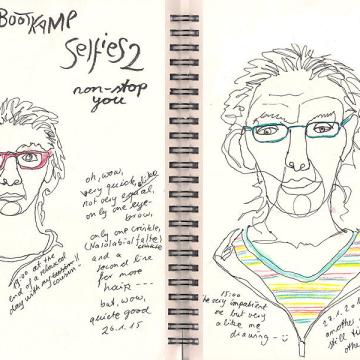 BOOTKAMP
Selfies 2
non-stop
you
oh, wow,
very quick, alike
not very equal,
only one eye-
brow,
only one crinkle,
(Nasolabialfalte)
and a
second line
for more
hair ---
but, wow,
quiete good
26.1.15
19:00 at the
end of a relaxed
day with my
cousin
15:00
very impatient
me but very
alike me
drawing - :)
27.1.2
another
still
othe